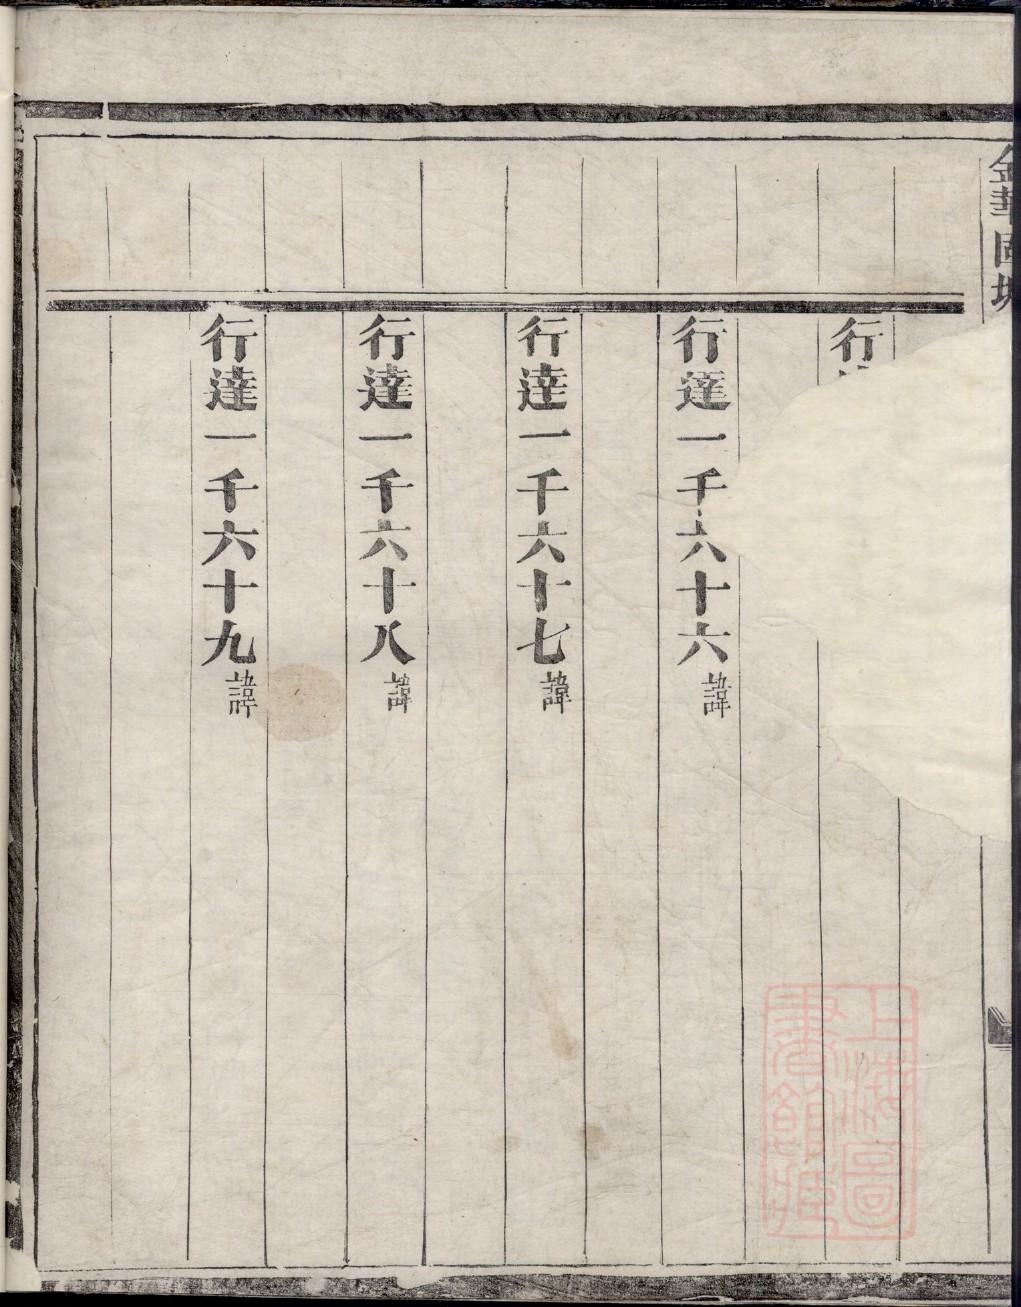 金華
行
行達一千六十六諱
行達一千六十七諱
行達一千六十八諱
行達一千六十九諱
上海圖
書館藏